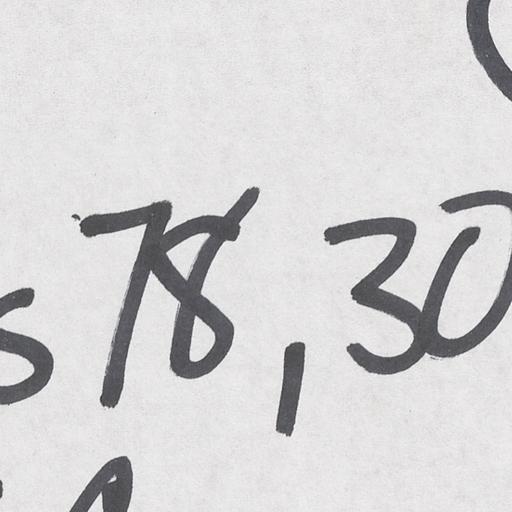 s 78,30